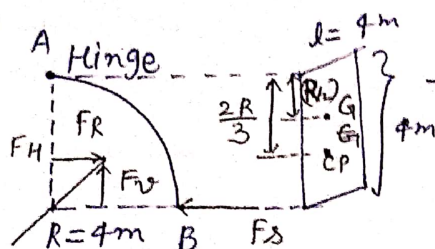 l = 4m
A Hinge
2R/3
(R/2)
G
G
CP
4m
FR
FH
Fv
R = 4m B Fs